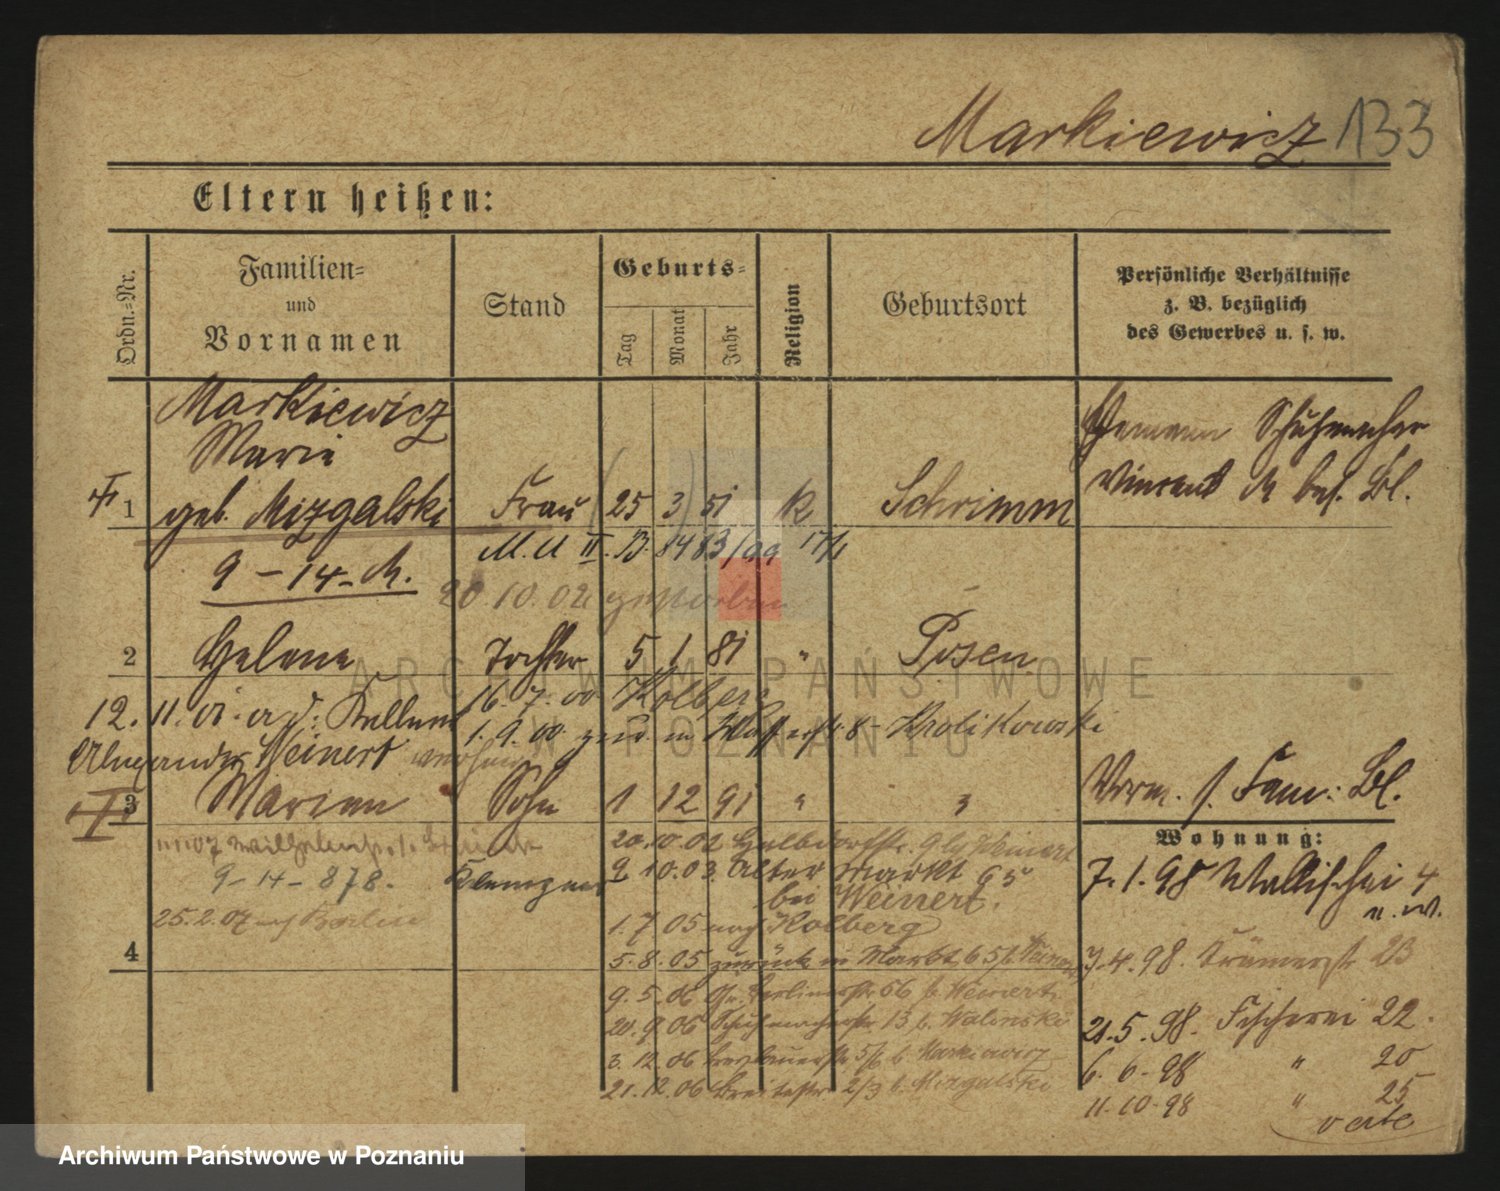 Markiewicz 133
Eltern heißen:
Ordn.=Nr.
Familien=
und
Vornamen
Stand
Geburts=
Tag
Monat
Jahr
Religion
Geburtsort
Persönliche Verhältnisse
z. B. bezüglich
des Gewerbes u. s. w.
Markiewicz
Marie
1 geb. Mizgalski Frau 25 3 51 k Schrimm
Ehemann Schuhmacher
Vincent M bes. Bl.
M. U II. B. 8483/99 17/1
9 - 14 - M.
20 10. 02 gestorben
2 Helene Tochter 5 1 81 " Posen
16. 7. 00 Kolberg
12. 11. Kellner
1. 9. 00 zurück Wasserstr. 8 Krolikowski
Alexander Weinert
3 Marian Sohn 1 12 91 " "
Vorm. s. Fam: Bl.
Wohnung:
11.07 Wilhelmstr.
9 - 14 - 878. Klempner
25.2.07 nach Berlin
4
20.10.02 Halbdorfstr. 9 bei Weinert
9 10.03. Alter Markt 65
bei Weinert.
1. 7 05 nach Kolberg
5. 8. 05 zurück Markt 65 b. Weinert
9. 5. 06 Gr. Berlinerstr 56 b. Weinert
20. 9. 06 Schuhmacherstr 13 b. Walinski
3. 12. 06 5/6 b. Markiewicz
21. 12. 06 Breitestr 2/3 b. Mizgalski
7. 1. 98 Wallischei 4
u. W.
7. 4. 98. Krämerstr 23
21. 5. 98. Fischerei 22.
6. 6. 98 " 20
11. 10. 98 " 25
verte
ARCHIWUM PAŃSTWOWE
W POZNANIU
Archiwum Państwowe w Poznaniu